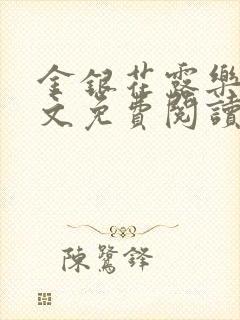 金銀花露樂
文免費閱讀
陳鷺鋒